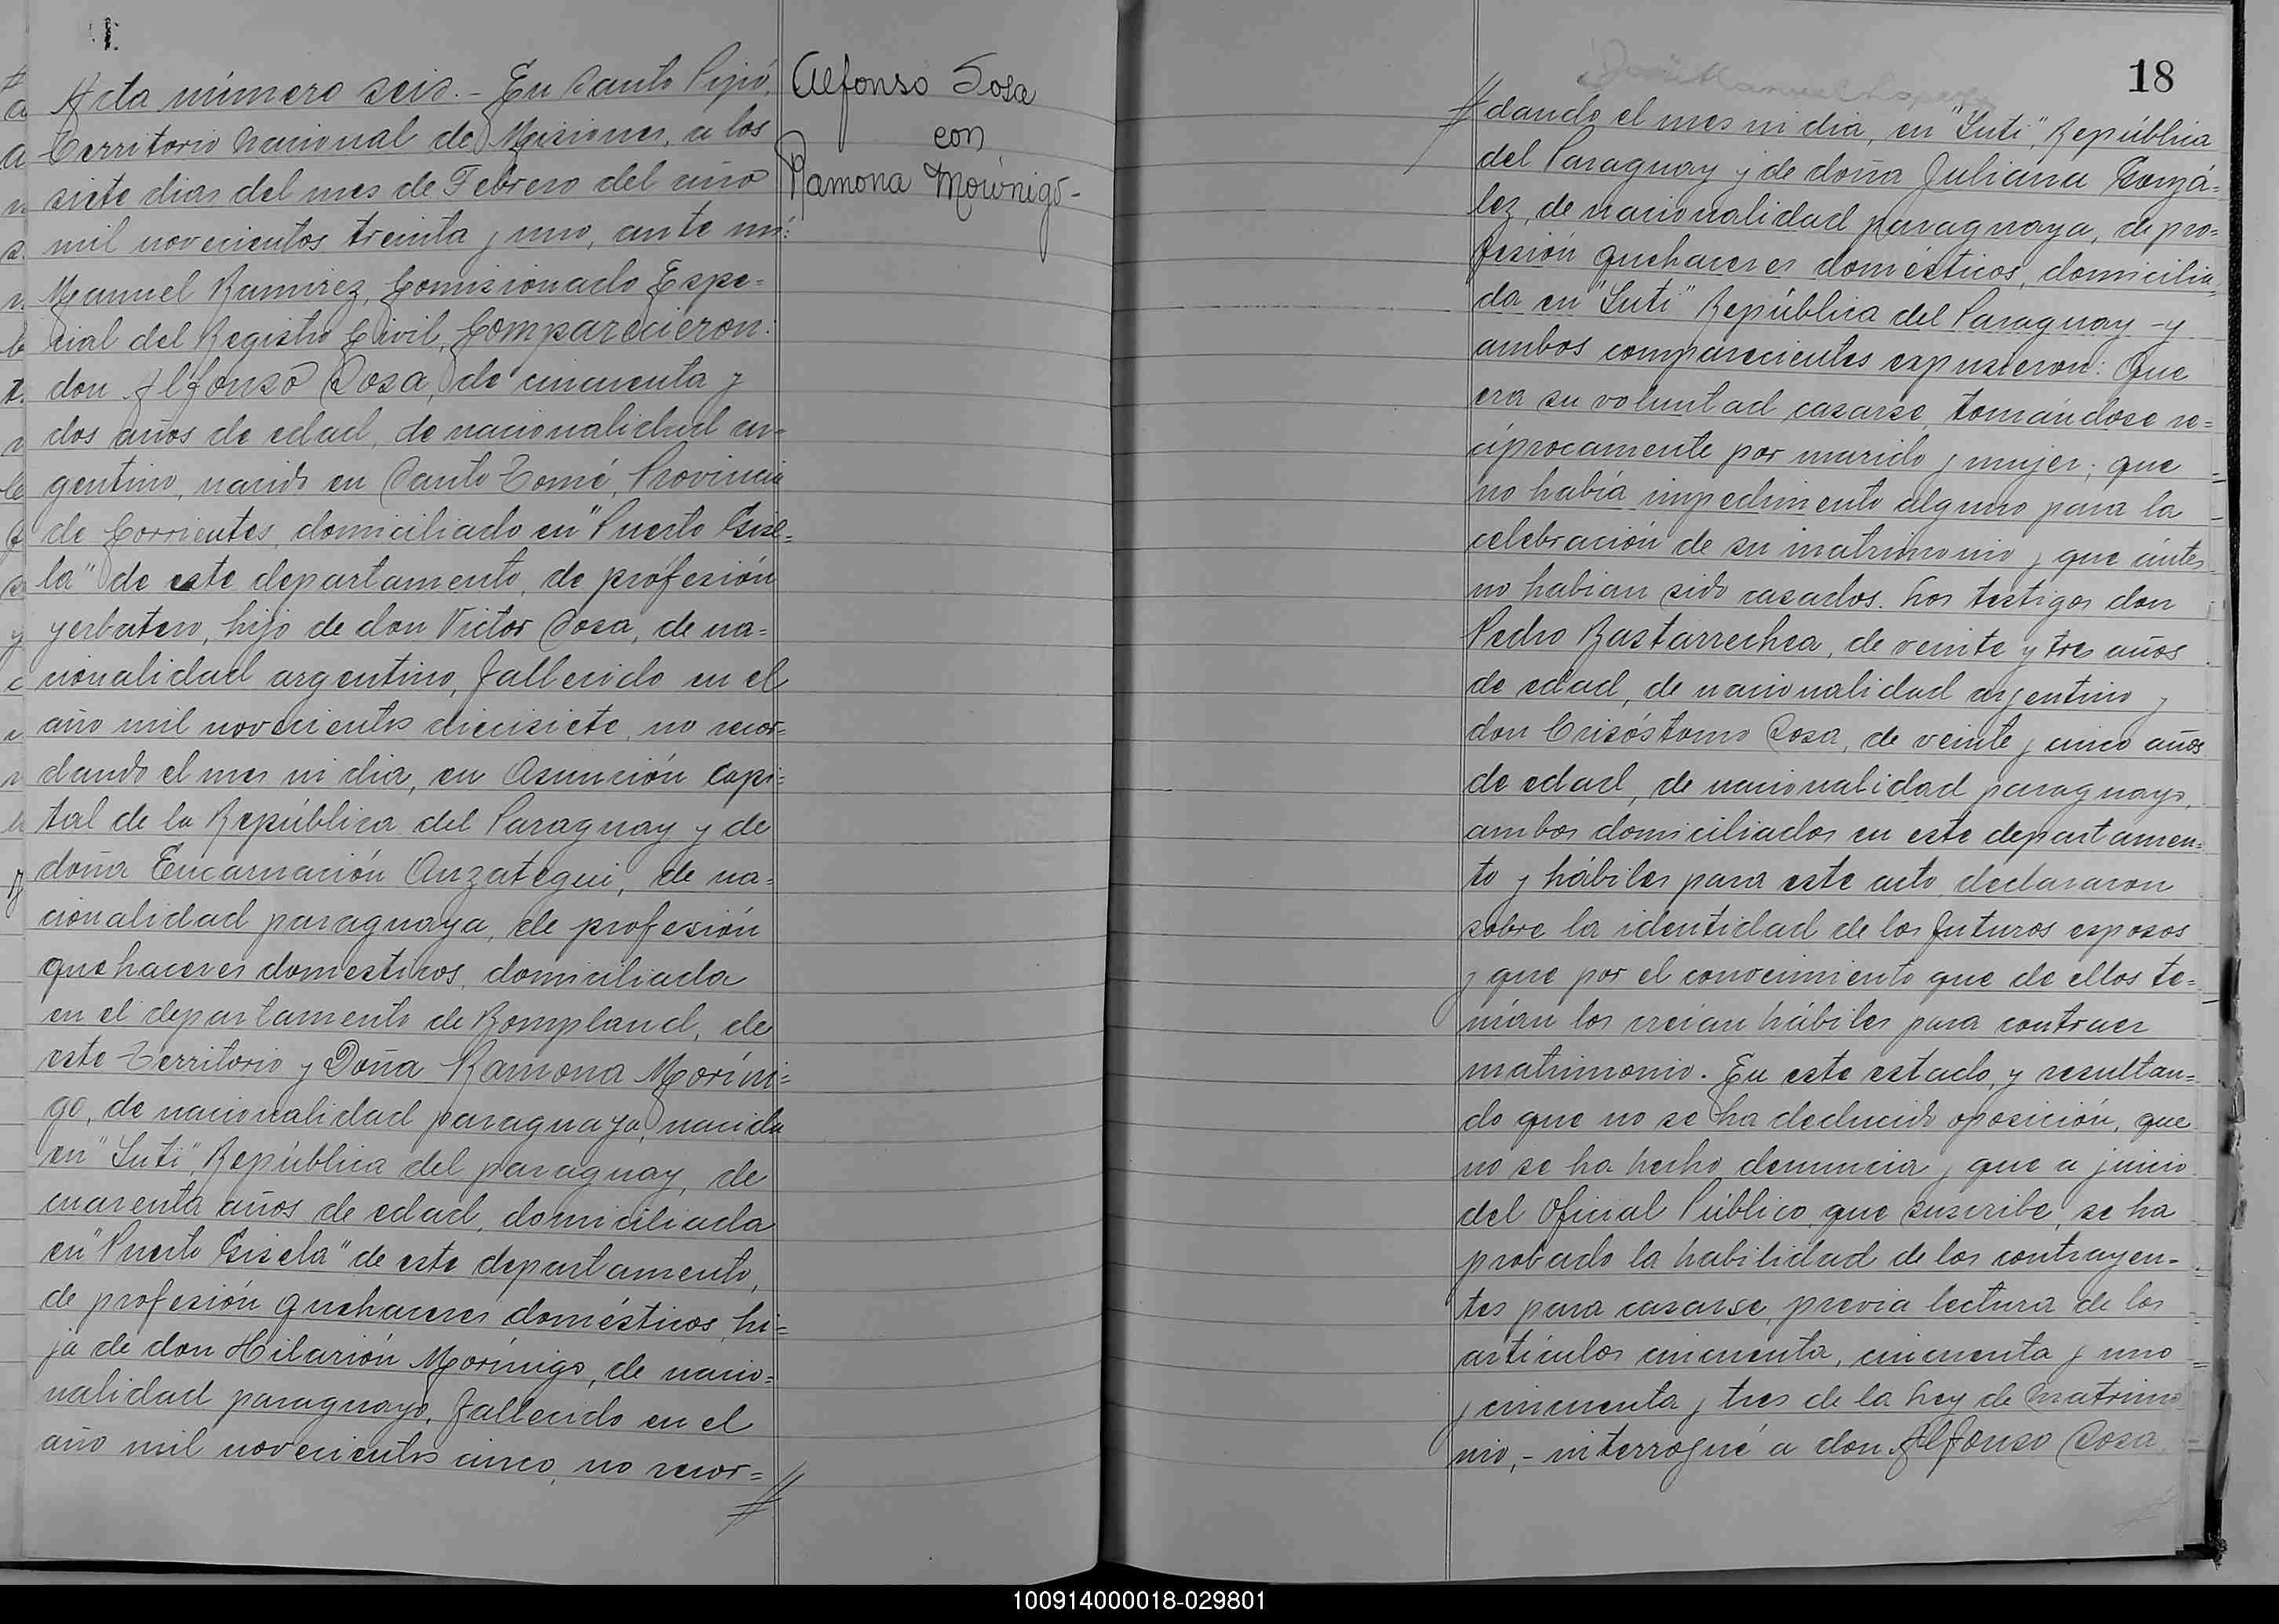 Acta número seis.- En Santo Pipó,
Territorio Nacional de Misiones, a los
siete dias del mes de Febrero del año
mil novecientos treinta y uno, ante mí:
Manuel Ramirez, Comisionado Espe=
cial del Registro Civil, Comparecieron:
don Alfonso Sosa, de cincuenta y
dos años de edad, de nacionalidad ar=
gentino, nacido en Santo Tomé, Provincia
de Corrientes, domiciliado en "Puerto Gise=
la" de este departamento, de profesión
yerbatero, hijo de don Victor Sosa, de na=
cionalidad argentino, fallecido en el
año mil novecientos diecisiete, no recor=
dando el mes ni dia, en Asunción Capi=
tal de la República del Paraguay y de
doña Encarnación Anzategui, de na=
cionalidad paraguaya, de profesión
quehaceres domesticos, domiciliada
en el departamento de Bompland, de
este Territorio y Doña Ramona Moríni=
go, de nacionalidad paraguaya, nacida
en "Yuti", República del paraguay, de
cuarenta años de edad, domiciliada
en "Puerto Gisela" de este departamento,
de profesión quehaceres domésticos, hi=
ja de don Hilarión Morínigo, de nacio=
nalidad paraguayo, fallecido en el
año mil novecientos cinco, no recor=//
//
Alfonso Sosa
con
Ramona Morínigo-
18
//dando el mes ni dia, en "Yuti", República
del Paraguay y de doña Juliana Gonzá=
lez, de nacionalidad paraguaya, de pro=
fesión quehaceres domésticos, domicilia=
da en "Yuti" República del Paraguay -y
ambos comparecientes expusieron: Que
era su voluntad casarse, tomándose re=
ciprocamente por marido y mujer; que
no había impedimento alguno para la
celebración de su matrimonio y que ántes
no habian sido casados. Los testigos don
Pedro Bastarrechea, de veinte y tres años
de edad, de nacionalidad argentino y
don Crisóstomo Sosa, de veinte y cinco años
de edad, de nacionalidad paraguayo,
ambos domiciliados en este departamen=
to y hábiles para este acto, declararon
sobre la identidad de los futuros esposos
y que por el conocimiento que de ellos te=
nían los creían hábiles para contraer
matrimonio. En este estado, y resultan=
do que no se ha deducido oposición, que
no se ha hecho denuncia y que a juicio
del Oficial Público que suscribe, se ha
probado la habilidad de los contrayen-
tes para casarse, previa lectura de los
artículos cincuenta, cincuenta y uno
y cincuenta y tres de la Ley de Matrimo
nio,- interrogué a don Alfonso Sosa,
100914000018-029801